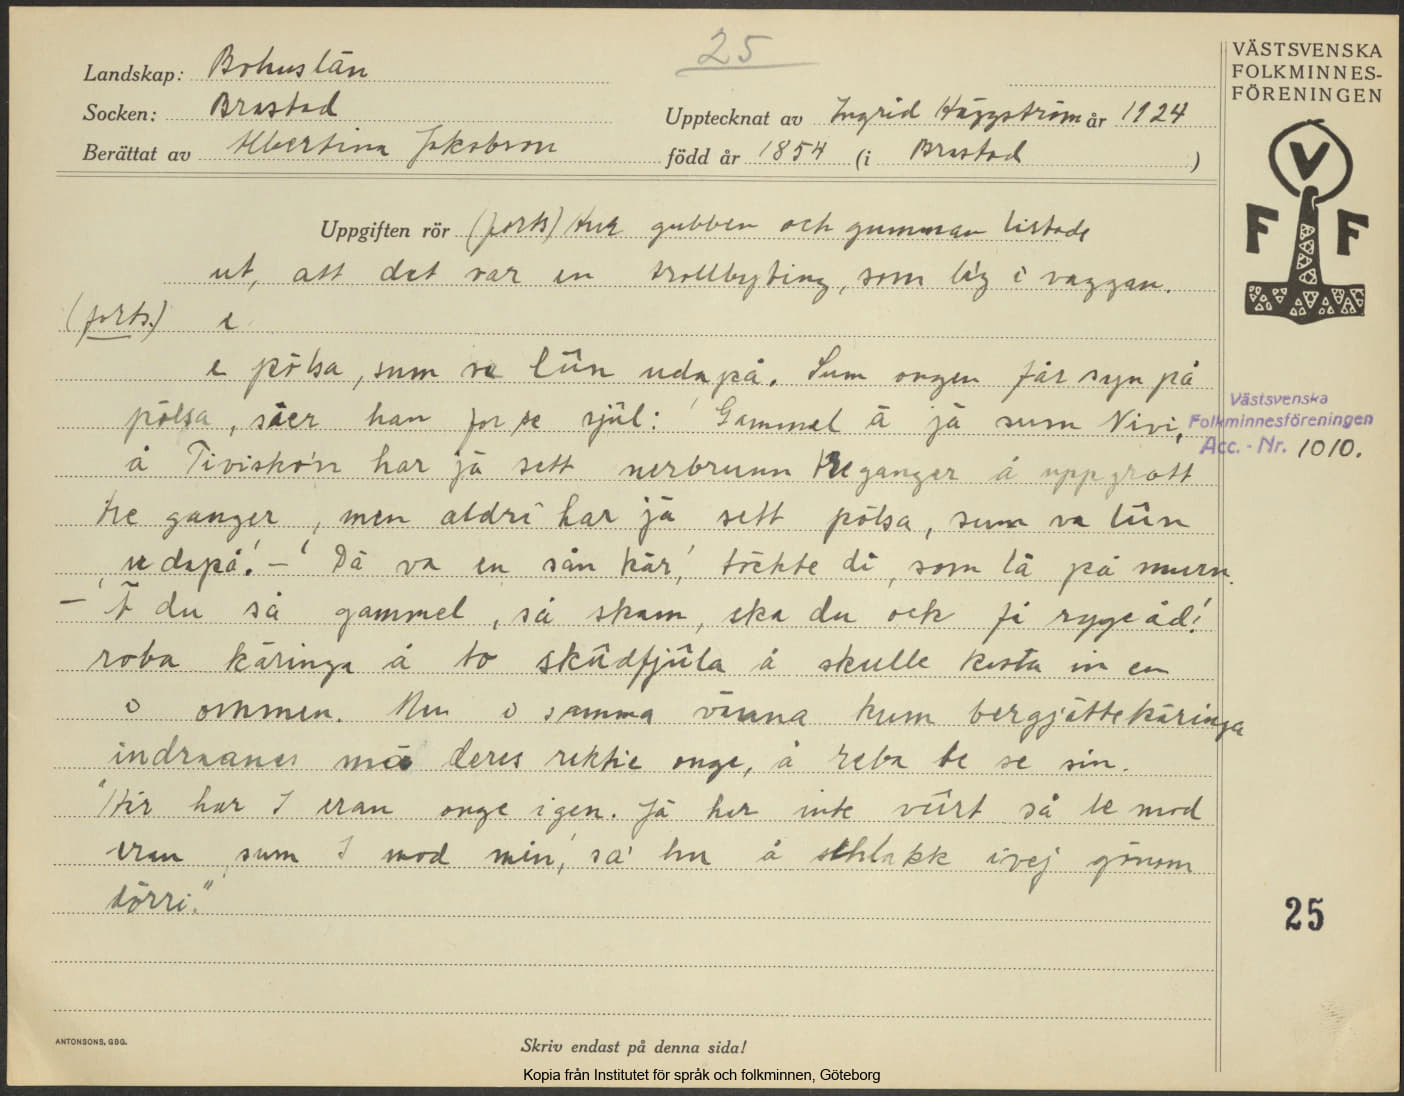 25
Landskap: Bohuslän
Socken: Brastad
Berättat av Albertina Jakobson
Upptecknat av Ingrid Häggström år 1924
född år 1854 (i Brastad)
VÄSTSVENSKA
FOLKMINNES-
FÖRENINGEN
V
F F
Uppgiften rör (forts) Hur gubben och gumman listade
ut, att det var en trollbyting, som låg i vaggan.
(forts.) e
e pölsa, sum va lûn udapå. Sum ongen får syn på
pölsa, säer han for se sjül: 'Gammel ä jä sum Nivi,
å Tiviskôn har jä sett nerbrunn tre ganger å uppgrott
tre ganger, men aldri har jä sett pölsa, sum va lûn
udapå!' – 'Dä va en sån kär', töckte di, som lå på murn.
– 'Ä du så gammel, så skam, ska du ock få rygeåd!'
roba käringa å to skûdfjûla å skulle kosta in en
o ommen. Men o samma vänna kum bergjättekäringa
indraanes mä deres rektie onge, å reba te se sin.
"Hér har I eran onge igen. Jä har inte vûrt så te mod
eran, sum I mod min', sa' hu å sthlakk ivej gönom
dörri."
Västsvenska
Folkminnesföreningen
Acc. - Nr. 1010.
25
ANTONSONS, GBG.
Skriv endast på denna sida!
Kopia från Institutet för språk och folkminnen, Göteborg